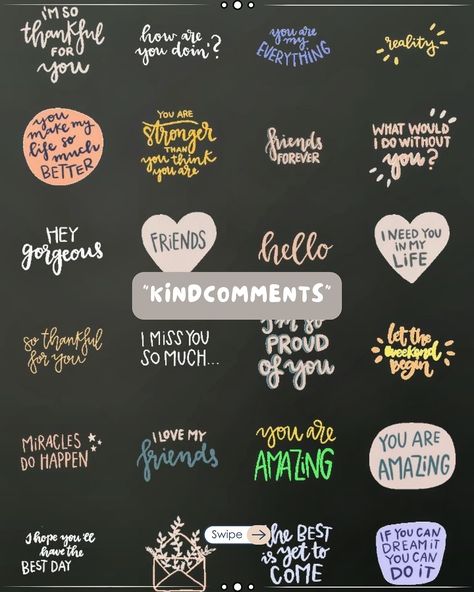 I'M SO
thankful
FOR
you
how are
you doin'?
you are
my
EVERYTHING
reality
you
make my
life so
much
BETTER
YOU ARE
stronger
THAN
you think
you are
friends
FOREVER
WHAT WOULD
I DO WITHOUT
you?
HEY
gorgeous
FRIENDS
hello
I NEED YOU
IN MY
LIFE
"KINDCOMMENTS"
so thankful
for you
I MISS YOU
SO MUCH...
I'm so
PROUD
of you
let the
weekend
begin
MIRACLES
DO HAPPEN
I LOVE MY
friends
you are
AMAZING
YOU ARE
AMAZING
I hope you'll
have the
BEST DAY
Swipe
he BEST
is yet to
COME
IF YOU CAN
DREAM IT
YOU CAN
DO IT